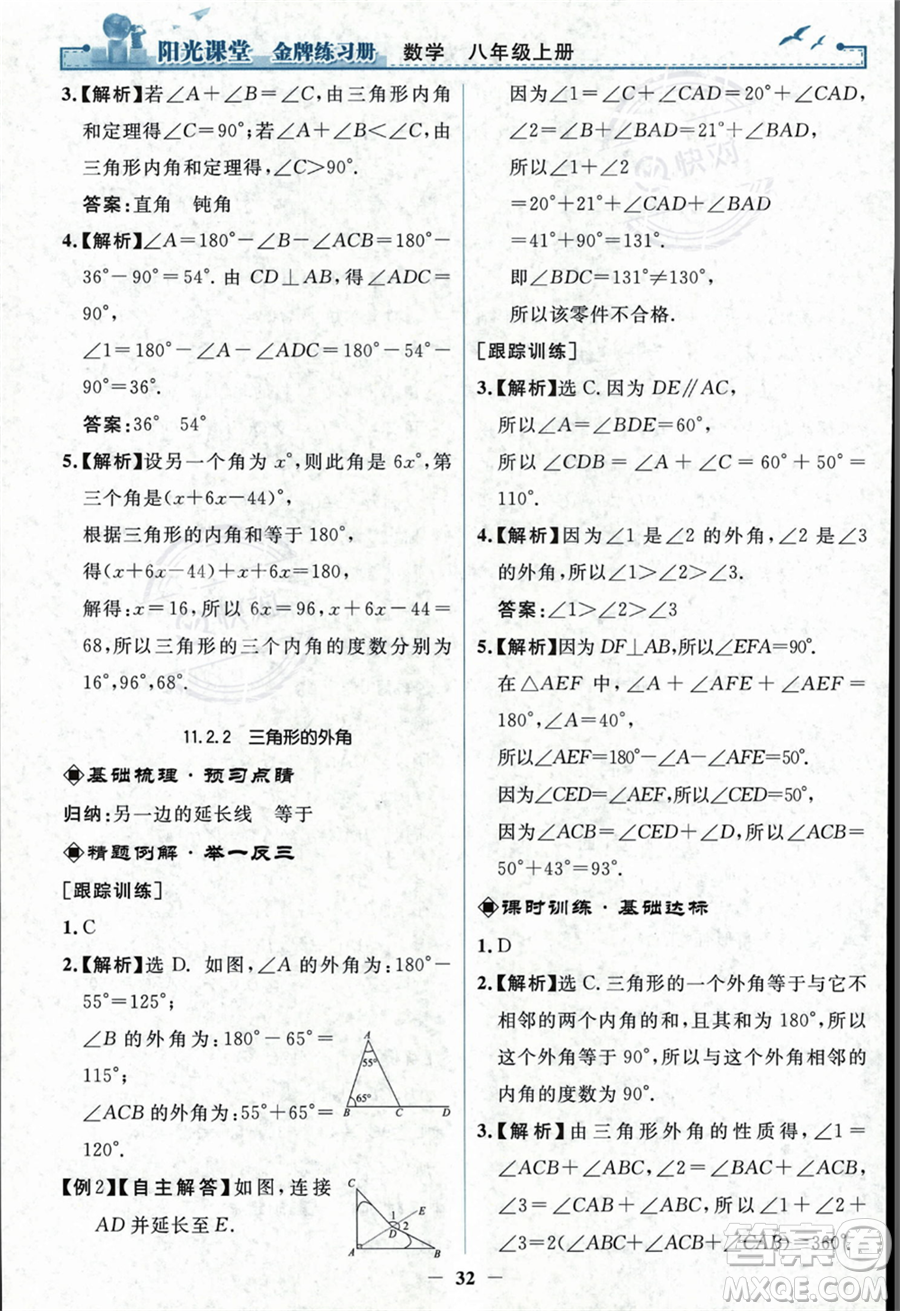 阳光课堂 金牌练习册 数学 八年级上册
3.【解析】若∠A+∠B=∠C,由三角形内角
和定理得∠C=90°;若∠A+∠B<∠C,由
三角形内角和定理得,∠C>90°.
答案:直角 钝角
4.【解析】∠A=180°-∠B-∠ACB=180°-
36°-90°=54°. 由 CD⊥AB,得∠ADC=
90°,
∠1=180°-∠A-∠ADC=180°-54°-
90°=36°.
答案:36° 54°
5.【解析】设另一个角为 x°,则此角是 6x°,第
三个角是(x+6x-44)°,
根据三角形的内角和等于 180°,
得(x+6x-44)+x+6x=180,
解得:x=16,所以 6x=96,x+6x-44=
68,所以三角形的三个内角的度数分别为
16°,96°,68°.
11.2.2 三角形的外角
基础梳理·预习点睛
归纳:另一边的延长线 等于
精题例解·举一反三
[跟踪训练]
1.C
2.【解析】选 D. 如图,∠A的外角为:180°-
55°=125°;
∠B的外角为:180°-65°=
115°;
∠ACB的外角为:55°+65°=
120°.
A
55°
65°
B C D
【例2】【自主解答】如图,连接
AD并延长至E.
C
E
1
2
D
A B
因为∠1=∠C+∠CAD=20°+∠CAD,
∠2=∠B+∠BAD=21°+∠BAD,
所以∠1+∠2
=20°+21°+∠CAD+∠BAD
=41°+90°=131°.
即∠BDC=131°≠130°.
所以该零件不合格.
[跟踪训练]
3.【解析】选 C. 因为 DE∥AC,
所以∠A=∠BDE=60°,
所以∠CDB=∠A+∠C=60°+50°=
110°.
4.【解析】因为∠1是∠2的外角,∠2是∠3
的外角,所以∠1>∠2>∠3.
答案:∠1>∠2>∠3
5.【解析】因为 DF⊥AB,所以∠EFA=90°.
在△AEF 中,∠A+∠EFA+∠AEF=
180°,∠A=40°,
所以∠AEF=180°-∠A-∠EFA=50°.
因为∠CED=∠AEF,所以∠CED=50°,
因为∠ACB=∠CED+∠D,所以∠ACB=
50°+43°=93°.
课时训练·基础达标
1.D
2.【解析】选 C. 三角形的一个外角等于与它不
相邻的两个内角的和,其和为 180°,所以
这个外角等于 90°,故与这个外角相邻的
内角的度数为 90°.
3.【解析】由三角形外角的性质得,∠1=
∠ACB+∠ABC,∠2=∠ACB+∠BAC,
∠3=∠CAB+∠CBA,所以∠1+∠2+
∠3=2(∠ACB+∠ABC+∠CAB)=360°.
32
答案圈
MXQE.COM